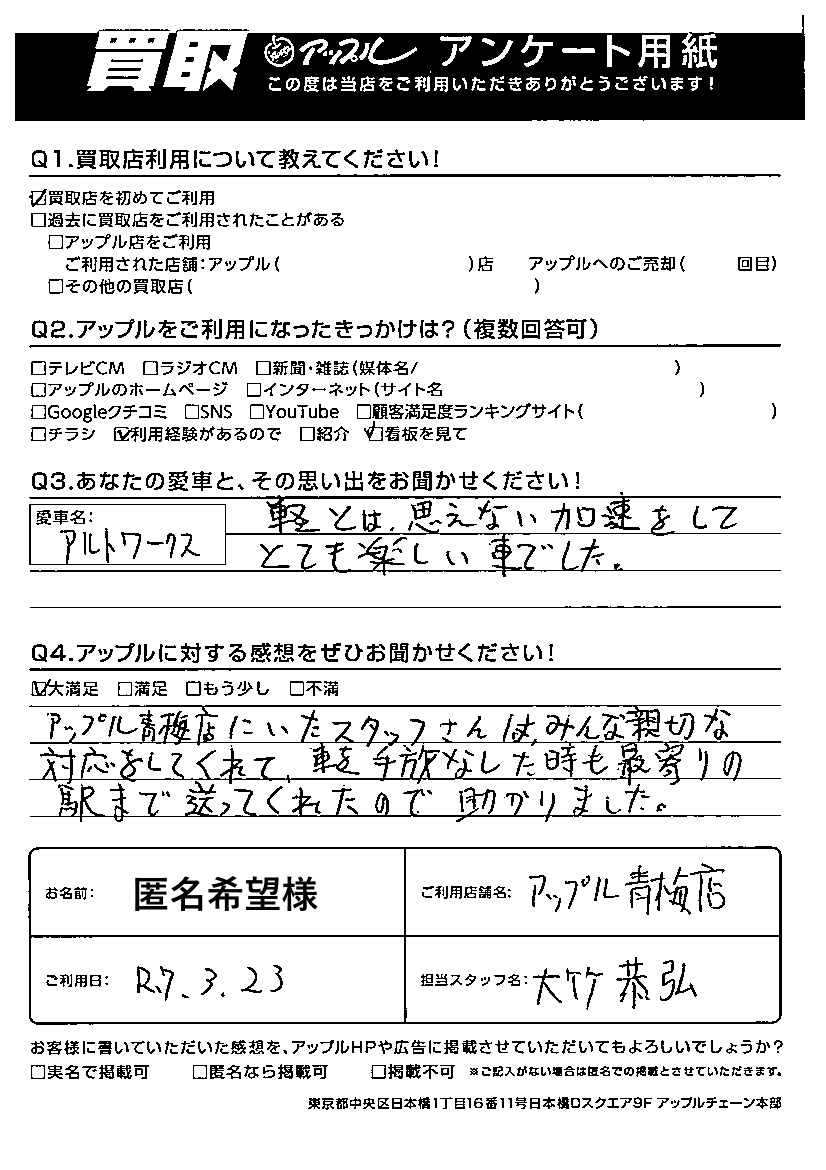 買取 アップル アンケート用紙
この度は当店をご利用いただきありがとうございます!
Q1.買取店利用について教えてください!
☑買取店を初めてご利用
□過去に買取店をご利用されたことがある
□アップル店をご利用
ご利用された店舗:アップル( )店 アップルへのご売却( 回目)
□その他の買取店( )
Q2.アップルをご利用になったきっかけは?(複数回答可)
□テレビCM □ラジオCM □新聞・雑誌(媒体名/ )
□アップルのホームページ □インターネット(サイト名 )
□Googleクチコミ □SNS □YouTube □顧客満足度ランキングサイト( )
□チラシ ☑利用経験があるので □紹介 ☑看板を見て
Q3.あなたの愛車と、その思い出をお聞かせください!
愛車名: 軽とは、思えない加速をして
アルトワークス とても楽しい車でした。
Q4.アップルに対する感想をぜひお聞かせください!
☑大満足 □満足 □もう少し □不満
アップル青梅店にいたスタッフさんは、みんな親切な
対応をしてくれて、車を手放なした時も最寄りの
駅まで送ってくれたので助かりました。
お名前: 匿名希望様 ご利用店舗名: アップル青梅店
ご利用日: R.7.3.23 担当スタッフ名: 大竹恭弘
お客様に書いていただいた感想を、アップルHPや広告に掲載させていただいてもよろしいでしょうか?
□実名で掲載可 □匿名なら掲載可 □掲載不可 ※ご記入がない場合は匿名での掲載とさせていただきます。
東京都中央区日本橋1丁目16番11号日本橋Dスクエア9F アップルチェーン本部